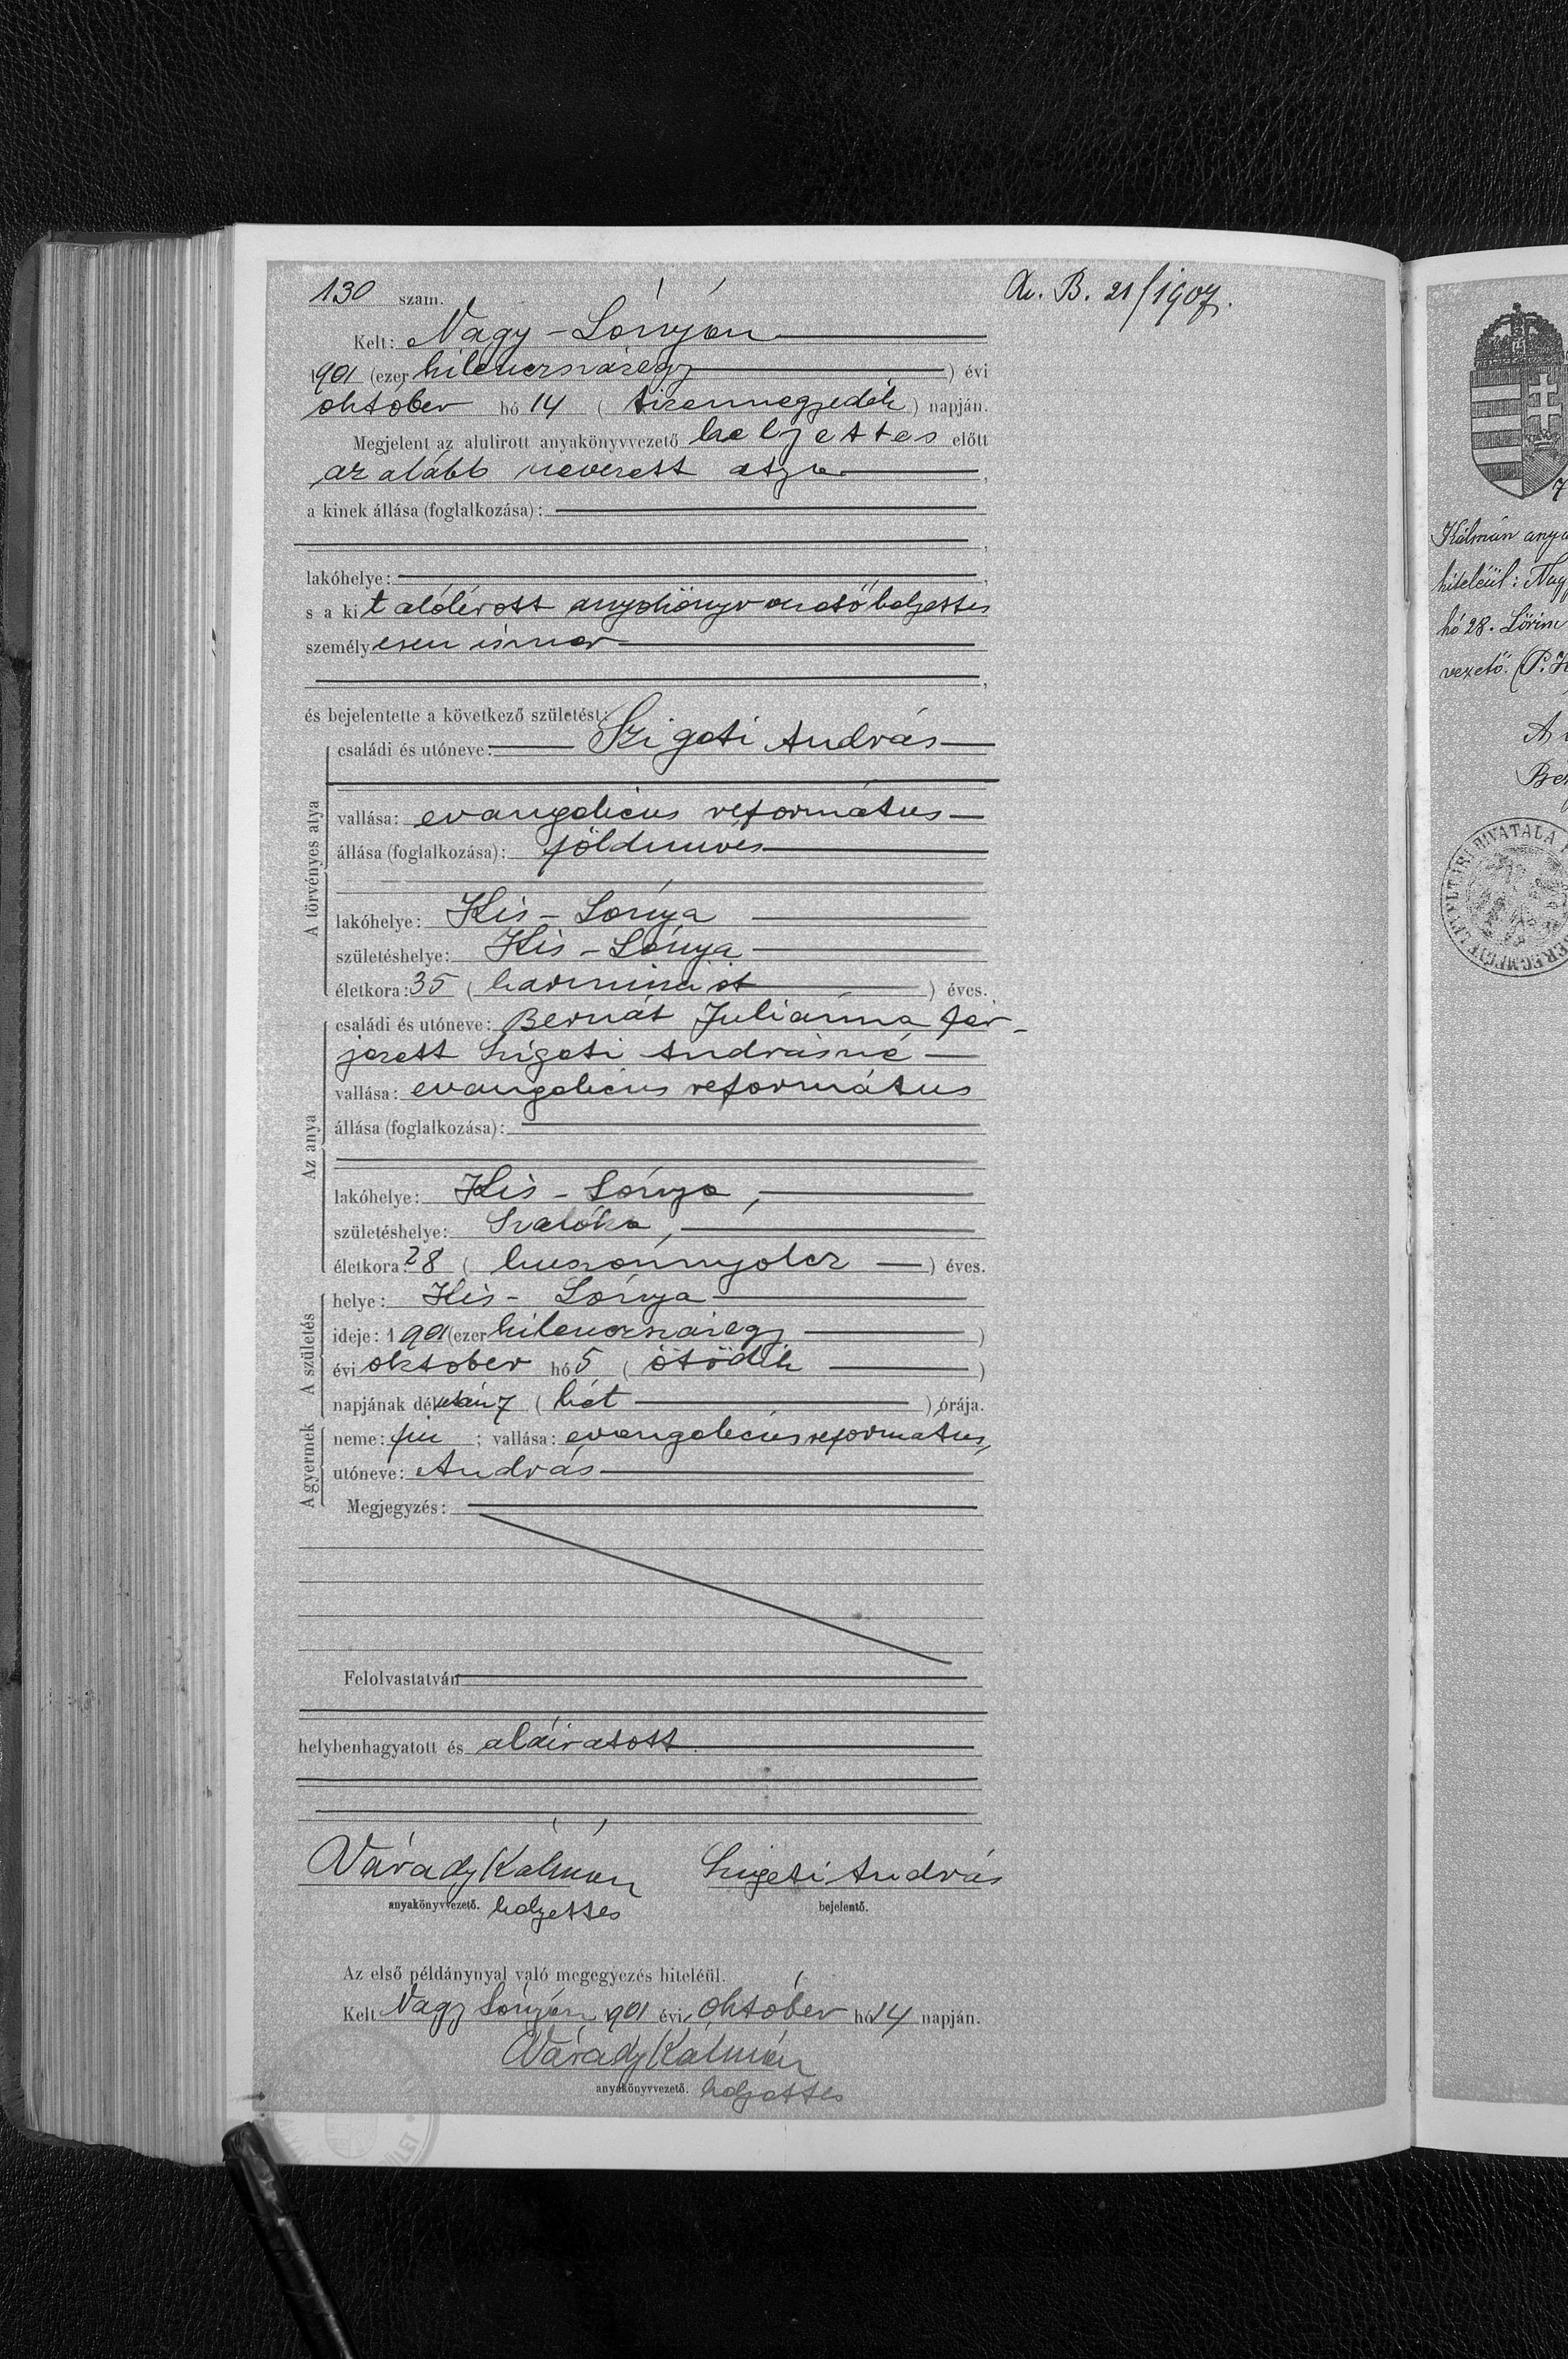 130 szám.
A. B. 21/1907.
Kelt: Nagy-Lónyán
1901 (ezer kilencszázegy) évi
október hó 14 (tizennegyedik) napján.
Megjelent az alulirott anyakönyvvezető helyettes előtt
az alább nevezett atya,
a kinek állása (foglalkozása):
lakóhelye:
s a kit alólirott anyakönyvvezetőhelyettes
személyesen ismer
és bejelentette a következő születést:
A törvényes atya
családi és utóneve: Szigeti András
vallása: evangelicus református
állása (foglalkozása): földmuvés
lakóhelye: Kis-Lónya
születéshelye: Kis-Lónya
életkora: 35 (harminczöt) éves.
Az anya
családi és utóneve: Bernát Juliánna fér-
jezett Szigeti Andrásné
vallása: evangelicus református
állása (foglalkozása):
lakóhelye: Kis-Lónya,
születéshelye: Szalóka,
életkora: 28 (huszonnyolcz) éves.
A születés
helye: Kis-Lónya
ideje: 1901 (ezer kilencszázegy)
évi oktober hó 5 (ötödik)
napjának délután 7 (hét) órája.
A gyermek
neme: fiu; vallása: evangelicus református,
utóneve: András
Megjegyzés:
Felolvastatván
helybenhagyatott és aláiratott.
Várady Kálmán Szigeti András
anyakönyvvezető. helyettes bejelentő.
Az első példánynyal való megegyezés hiteléül.
Kelt Nagy Lónyán 1901 évi október hó 14 napján.
Várady Kálmán
anyakönyvvezető. helyettes
Kálmán
hiteléül:
hó 28. Lőrinc
vezető. (P.H